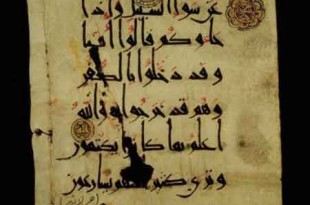 عن سوا السبيل واذا
جاوكم قالوا امنا
وقد دخلوا بالكفر
وهم قد خرجوا به والله
اعلم بما كانوا يكتمون
وترى كثيرا منهم يسارعون